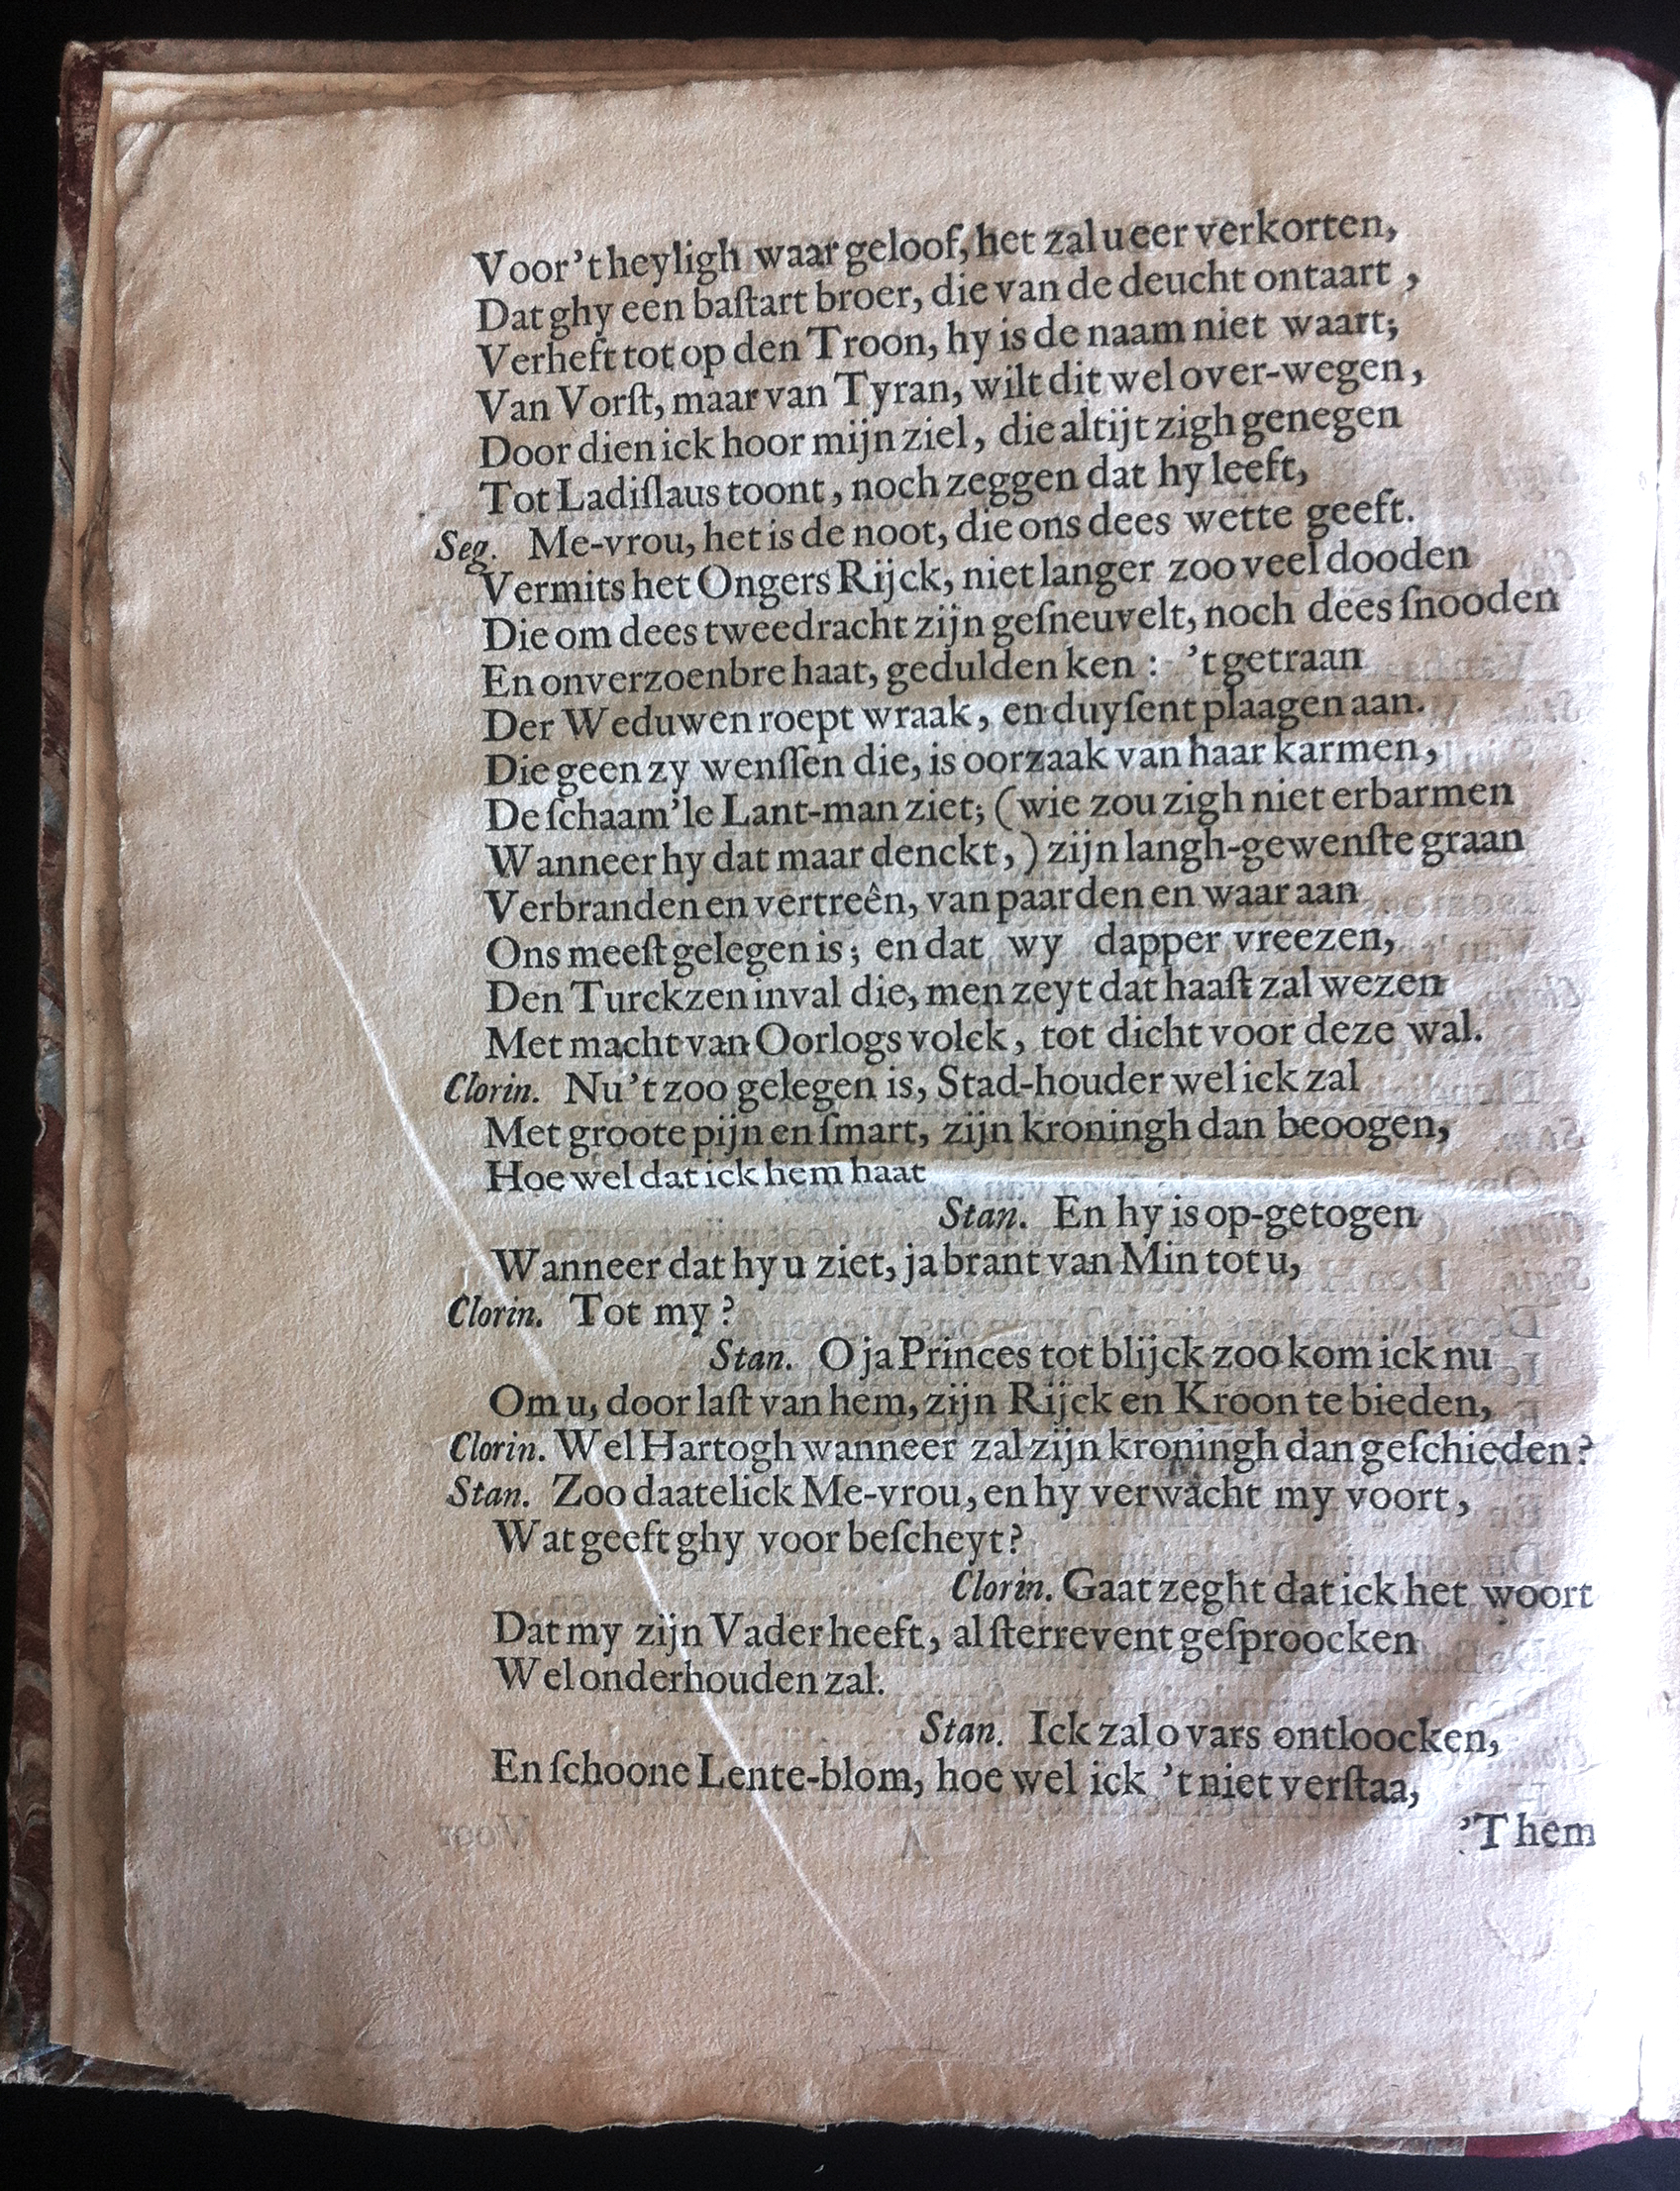 Voor 't heyligh waar geloof, het zal u eer verkorten,
Dat ghy een baſtart broer, die van de deucht ontaart,
Verheft tot op den Troon, hy is de naam niet waart;
Van Vorſt, maar van Tyran, wilt dit wel over-wegen,
Door dien ick hoor mijn ziel, die altijt zigh genegen
Tot Ladiſlaus toont, noch zeggen dat hy leeft,
Seg. Me-vrou, het is de noot, die ons dees wette geeft.
Vermits het Ongers Rijck, niet langer zoo veel dooden
Die om dees tweedracht zijn geſneuvelt, noch dees ſnooden
En onverzoenbre haat, gedulden ken : 't getraan
Der Weduwen roept wraak, en duyſent plaagen aan.
Die geen zy wenſſen die, is oorzaak van haar karmen,
De ſchaam'le Lant-man ziet; (wie zou zigh niet erbarmen
Wanneer hy dat maar denckt,) zijn langh-gewenſte graan
Verbranden en vertreên, van paarden en waar aan
Ons meeſt gelegen is; en dat wy dapper vreezen,
Den Turckzen inval die, men zeyt dat haaſt zal wezen
Met macht van Oorlogs volck, tot dicht voor deze wal.
Clorin. Nu 't zoo gelegen is, Stad-houder wel ick zal
Met groote pijn en ſmart, zijn kroningh dan beoogen,
Hoe wel dat ick hem haat
Stan. En hy is op-getogen
Wanneer dat hy u ziet, ja brant van Min tot u,
Clorin. Tot my?
Stan. O ja Princes tot blijck zoo kom ick nu
Om u, door laſt van hem, zijn Rijck en Kroon te bieden,
Clorin. Wel Hartogh wanneer zal zijn kroningh dan geſchieden?
Stan. Zoo daatelick Me-vrou, en hy verwacht my voort,
Wat geeft ghy voor beſcheyt?
Clorin. Gaat zeght dat ick het woort
Dat my zijn Vader heeft, al ſterrevent geſproocken
Wel onderhouden zal.
Stan. Ick zal o vars ontloocken,
En ſchoone Lente-blom, hoe wel ick 't niet verſtaa,
'T hem